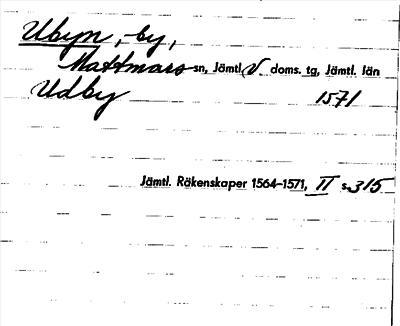 Ubyn, by,
Mattmars sn, Jämtl. V. doms. tg, Jämtl. län
Udby 1571
Jämtl. Räkenskaper 1564–1571, II s. 315